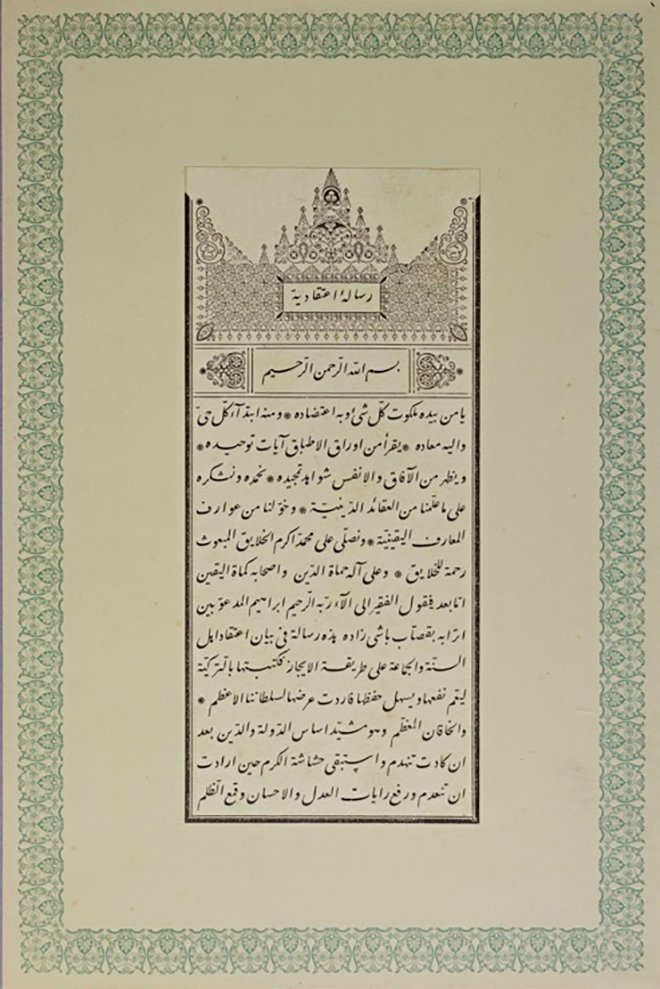 رسالهٔ اعتقادية
بسم الله الرّحمن الرّحيم
يا من بيده ملكوت كلّ شئ وبه اعتضاده * ومنه ابتدآء كلّ حىّ
واليه معاده * يقرأ من اوراق الاطباق آيات توحيده *
وينظر من الآفاق والانفس شواهد تمجيده * نحمده ونشكره
على ما علّمنا من العقائد الدّينيّة * وخوّلنا من عوارف
المعارف اليقينيّة * ونصلّى على محمّد اكرم الخلايق المبعوث
رحمة للخلايق * وعلى آله حماة الدّين واصحابه كماة اليقين
امّا بعد فيقول الفقير الى آلاء ربه الرّحيم ابراهيم المدعوّ بين
اترابه بقصّاب باشى زاده هذه رسالة فى بيان اعتقاد اهل
السنّة والجماعة على طريقة الايجاز فكتبتها بالتّركيّة
ليتم نفعها ويسهل حفظها فاردت عرضها لسلطاننا الاعظم *
والخاقان المعظّم وهو مشيّد اساس الدّولة والدّين بعد
ان كادت تنهدم واستبقى حشاشة الكرم حين ارادت
ان تنعدم ورفع رايات العدل والاحسان وقمع الظّلم